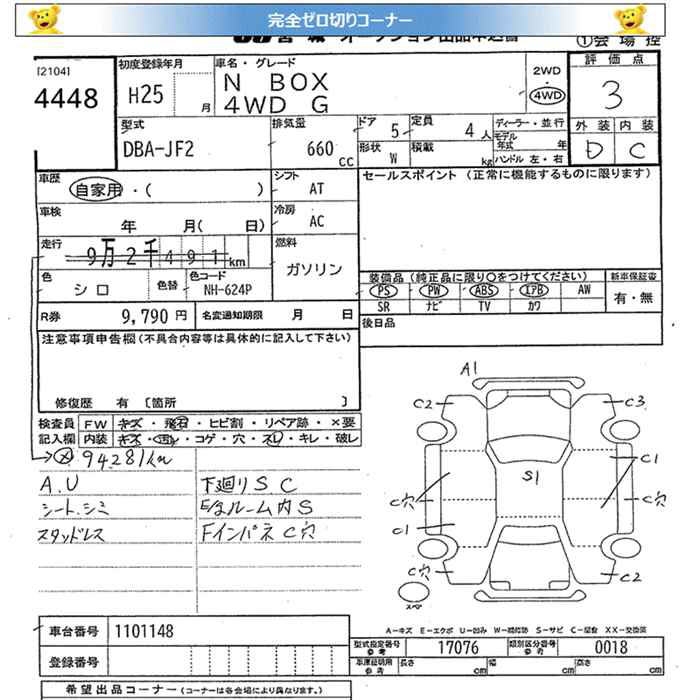 完全ゼロ切りコーナー
オークション出品申込書
①会場控
[2104]
4448
初度登録年月
H25 月
車名・グレード
N BOX
4WD G
2WD
・
4WD
評価点
3
外装 内装
D C
型式
DBA-JF2
排気量
660 cc
ドア 5
定員 4 人
形状 W
積載 kg
ディーラー・並行
モデル年式 年
ハンドル 左・右
車歴
自家用・( )
シフト AT
セールスポイント (正常に機能するものに限ります)
車検
年 月( 日)
冷房 AC
走行
9万2千491km
燃料
ガソリン
色
シロ
色替
色コード
NH-624P
装備品 (純正品に限り○をつけてください)
新車保証書
PS PW ABS エアB AW
SR ナビ TV カワ
有・無
R券 9,790円
名変通知期限 月 日
後日品
注意事項申告欄(不具合内容等は具体的に記入して下さい)
修復歴 有 〔箇所 〕
検査員記入欄
FW キズ・飛石・ヒビ割・リペア跡・×要
内装 キズ・コゲ・穴・スレ・キレ・破レ
→ⓧ94281km
A.U 下廻りSC
シート.シミ E/gルーム内S
スタッドレス FインパネC穴
A1
C2 C3
S1
C1
C穴 C穴
C1
C穴 C2
スペア
A-キズ E-エクボ U-凹み W-補修跡 S-サビ C-腐食 XX-交換済
車台番号 1101148
登録番号
型式指定番号 参考 17076
類別区分番号 参考 0018
車庫証明用 参考 長さ cm 幅 cm 高さ cm
希望出品コーナー (コーナーは各会場により異なります。)